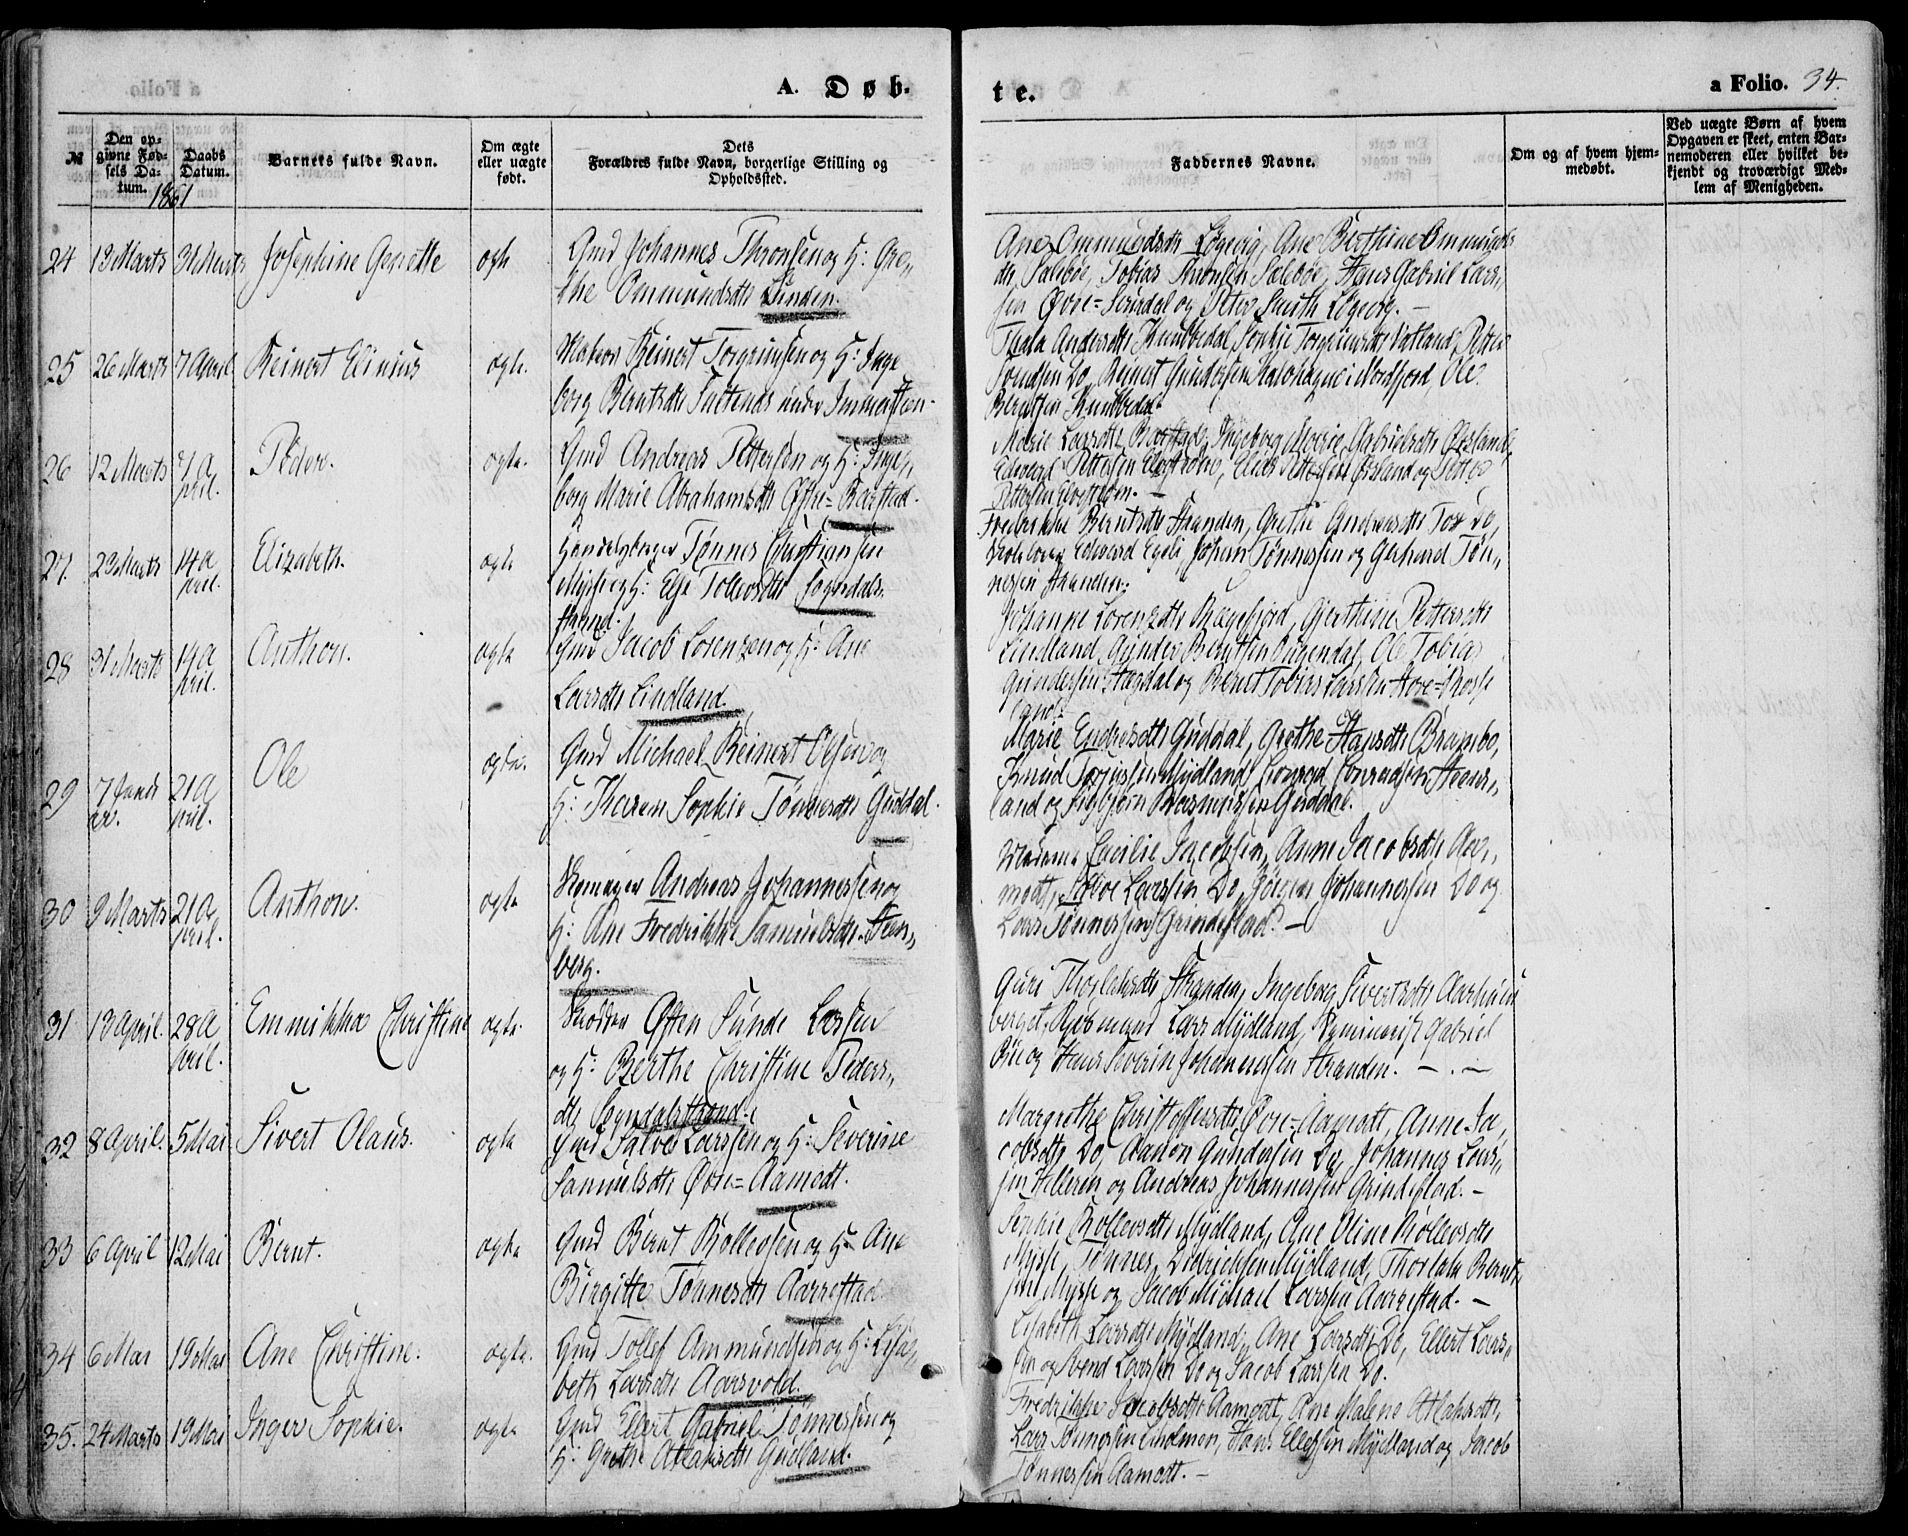 A. Døb-
te.
a Folio. 34.
№
Den op-
givne Fød-
sels Da-
tum.
Daabs
Datum.
1861
Barnets fulde Navn.
Om ægte
eller uægte
født.
Dets
Forældres fulde Navn, borgerlige Stilling og
Opholdssted.
Faddernes Navne.
Om og af hvem hjem-
medøbt.
Ved uægte Børn af hvem
Opgaven er skeet, enten Bar-
nemoderen eller hvilket be-
kjendt og troværdigt Med-
lem af Menigheden.
24 13 Marts 31 Marts Josephine Gerette ægte
Gmd Johannes Thronsen og H: Gre-
the Ommundsdtr Linden.
Ane Ommundsdtr Løgevig, Ane Berthine Ommunds
dtr Salebøe, Tobias Thronsen Salebøe, Hans Gabriel Lars
sen Øvre= og Peter Smith Løgevig. —
25 26 Marts 7 April Reinert Elinius ægte.
Reinert Torgrimsen og H: Inge
borg Berntsdtr under
Thala Andersdtr Knubbedal, Sophie Vatland, Petter
Do, Bernt Gundersen i Nordfjord, Ole
Berntsen Knubbedal
26 12 Marts 7 A
pril. Peder. ægte.
Gmd Andreas Pettersen og H: Inge,
borg Marie Abrahamsdtr Øvre= Barstad.
Marie Larsdtr Barstad, Ingeborg Marie Gabrielsdtr Ørsland,
Edward Pettersen Elvestrøm, Elias Pettersen Ørsland og Petter
Pettersen Elvestrøm. —
27. 23 Marts 14 A
pril. Elizabeth. ægte
Handelsborger Tønnes Christiansen
og H: Tollevsdtr Sogndals
strand.
Frederikke Berntsdtr Stranden, Grethe Andreasdtr Do,
Edward Egeli, Johan Tønnessen og Gerhard Tøn,,
nessen Stranden;
28 31 Marts 14 A
pril. Anthon. ægte
Gmd Jacob Lorenzen og H: Ane
Larsdtr Lindland.
Johanne Lorenzdtr Regefjord, Gjerthine Pettersdtr
Lindland, Gunder Berntsen Ole Tobias
Gundersen og Bernt Tobias Larssen Store= Rosse
land
29 7 Janu
ar. 21 A
pril. Ole ægte.
Gmd Michael Reinert Olsen og
H: Karen Sophie Tønnesdtr Guddal.
Marie Endresdtr Guddal, Grethe Hansdtr Brambo,
Knud Mydland, Conrad
land og Sigbjørn Rasmussen Guddal.
30 9 Marts 21 A
pril. Anthon. ægte
Skomager Andreas Johannessen og
H: Ane Fredrikke Samuelsdtr Steen,
berg.
Madame Cecilie Jacobsen, Anne Jacobsdtr Aa,
modt, Salve Larssen Do, Jørgen Johannessen Do og
Lars Tønnessen Grindestad. —
31 13 April. 28 A
pril. Emmikka Christine ægte.
Østen Sunde Larsen
og H: Berthe Christine Peders,,
dtr Sogndalstrand.
Guri Thorlaksdtr Stranden, Ingeborg Sivertsdtr
berget, Kjøbmand Lars Mydland, Seminarist Gabriel
Bøe og Hans Severin Johannessen Stranden. — . —
32 8 April. 5 Mai Sivert Olaus. ægte
Gmd Salve Larssen og H: Severine
Samuelsdtr Øvre= Aamodt.
Margrethe Christoffersdtr Øvre= Aamodt, Anne Ja,
cobsdtr Do, Aanon Gundersen Do, Johannes Lars,
sen Helleren og Andreas Johannessen Grindestad. —
33 6 April 12 Mai Bernt. ægte
Gmd Bernt Rollevsen og H: Ane
Birgitte Tønnesdtr Aarrestad.
Sophie Rollevsdtr Mydland, Ane Oline Rollevsdtr
Mysse, Tønnes Didrichsen Mydland, Thorlak Bernt,
sen Mysse og Jacob Michael Larssen Aarrestad. —
34 6 Mai 19 Mai Ane Christine. ægte.
Gmd Tollef Ammundsen og H: Elisa,
beth Larsdtr Aarsvold.
Lisabeth Larsdtr Mydland, Ane Larsdtr Do, Ellert Lars,,
sen og Svend Larssen Do og Jacob Larssen Do.
35. 24 Marts 19 Mai Inger Sophie. ægte
Gmd Ellert Gabriel Tønnessen og
H: Grethe Atlaksdtr Gudland.
Fredrikke Jacobsdtr Aamodt, Ane Malene Atlaksdtr,
Lars Tønnessen Hans Ellefsen Mydland og Jacob
Tønnessen Aamodt. —